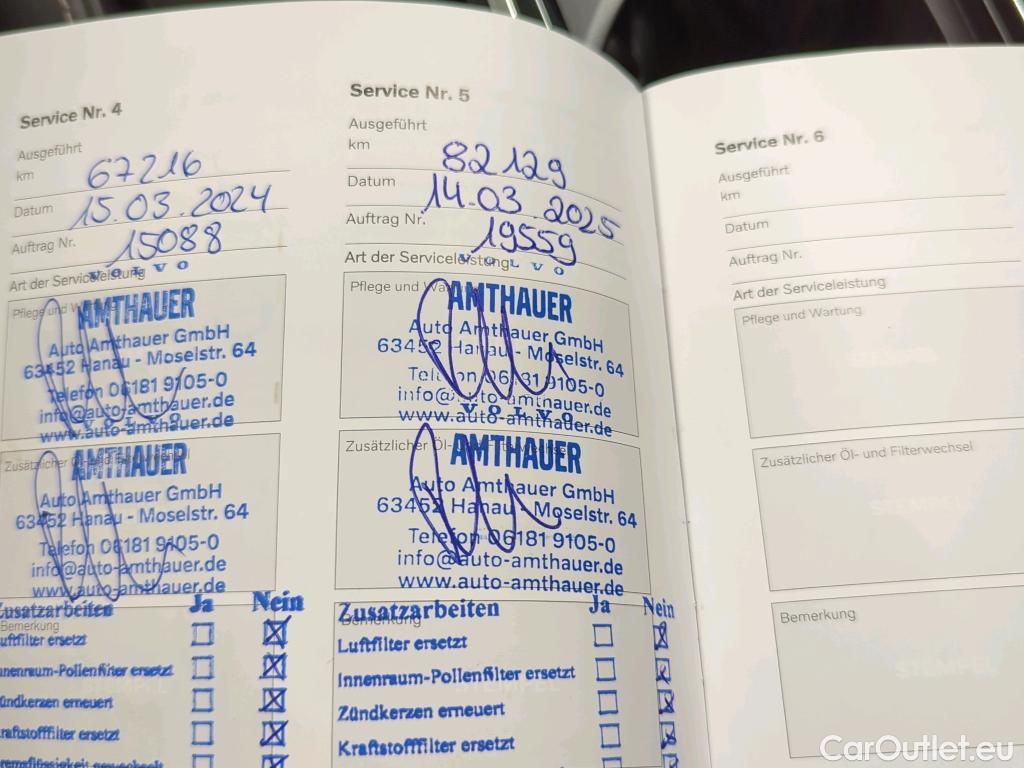 Service Nr. 4
Ausgeführt
km 67216
Datum 15.03.2024
Auftrag Nr. 15088
Art der Serviceleistung
VOLVO
Pflege und Wartung
AMTHAUER
Auto Amthauer GmbH
63452 Hanau - Moselstr. 64
Telefon 06181 9105-0
info@auto-amthauer.de
www.auto-amthauer.de
VOLVO
Zusätzlicher Öl-
AMTHAUER
Auto Amthauer GmbH
63452 Hanau - Moselstr. 64
Telefon 06181 9105-0
info@auto-amthauer.de
www.auto-amthauer.de
Zusatzarbeiten Ja Nein
Bemerkung
uftfilter ersetzt
nnenraum-Pollenfilter ersetzt
ündkerzen erneuert
raftstofffilter ersetzt
Service Nr. 5
Ausgeführt
km 82129
Datum 14.03.2025
Auftrag Nr. 19559
Art der Serviceleistung
VOLVO
Pflege und
AMTHAUER
Auto Amthauer GmbH
63452 Hanau - Moselstr. 64
Telefon 06181 9105-0
info@auto-amthauer.de
www.auto-amthauer.de
VOLVO
Zusätzlicher Öl-
AMTHAUER
Auto Amthauer GmbH
63452 Hanau - Moselstr. 64
Telefon 06181 9105-0
info@auto-amthauer.de
www.auto-amthauer.de
Zusatzarbeiten Ja Nein
Bemerkung
Luftfilter ersetzt
Innenraum-Pollenfilter ersetzt
Zündkerzen erneuert
Kraftstofffilter ersetzt
Service Nr. 6
Ausgeführt
km
Datum
Auftrag Nr.
Art der Serviceleistung
Pflege und Wartung
STEMPEL
Zusätzlicher Öl- und Filterwechsel
STEMPEL
Bemerkung
STEMPEL
CarOutlet.eu